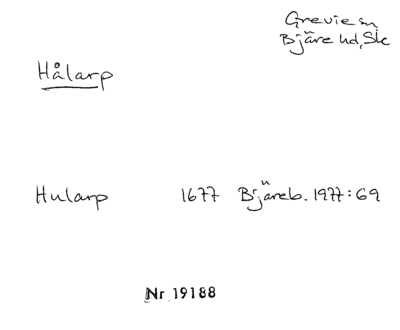 Grevie sn
Bjäre hd, Sk
Hålarp
Hularp 1677 Bjäreb. 1977:69
Nr 19188